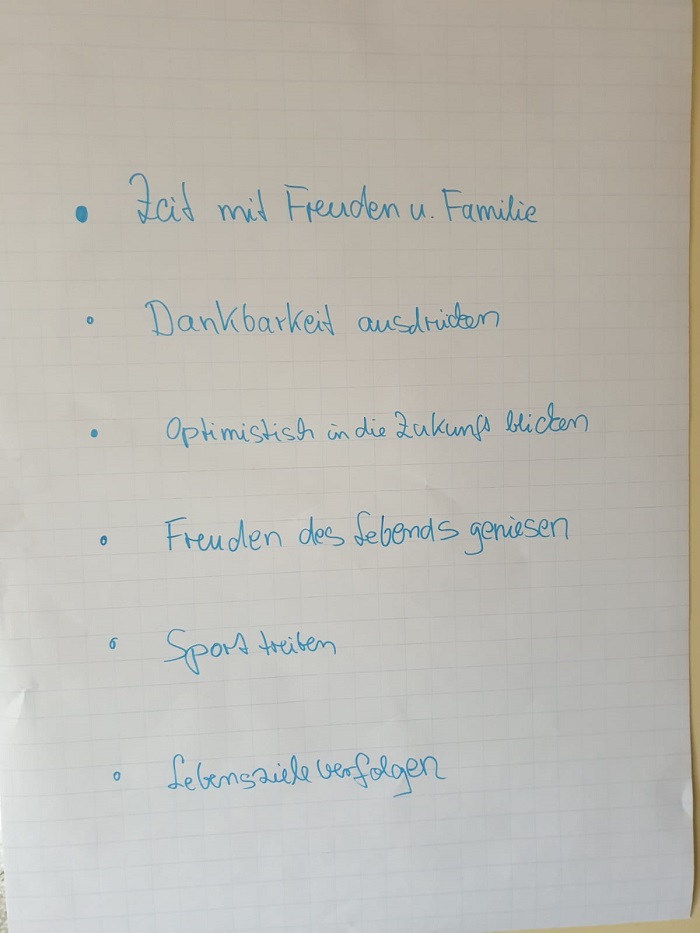 • Zeit mit Freuden u. Familie
• Dankbarkeit ausdrücken
• Optimistisch in die Zukunft blicken
• Freuden des Lebends geniesen
• Sport treiben
• Lebensziele verfolgen